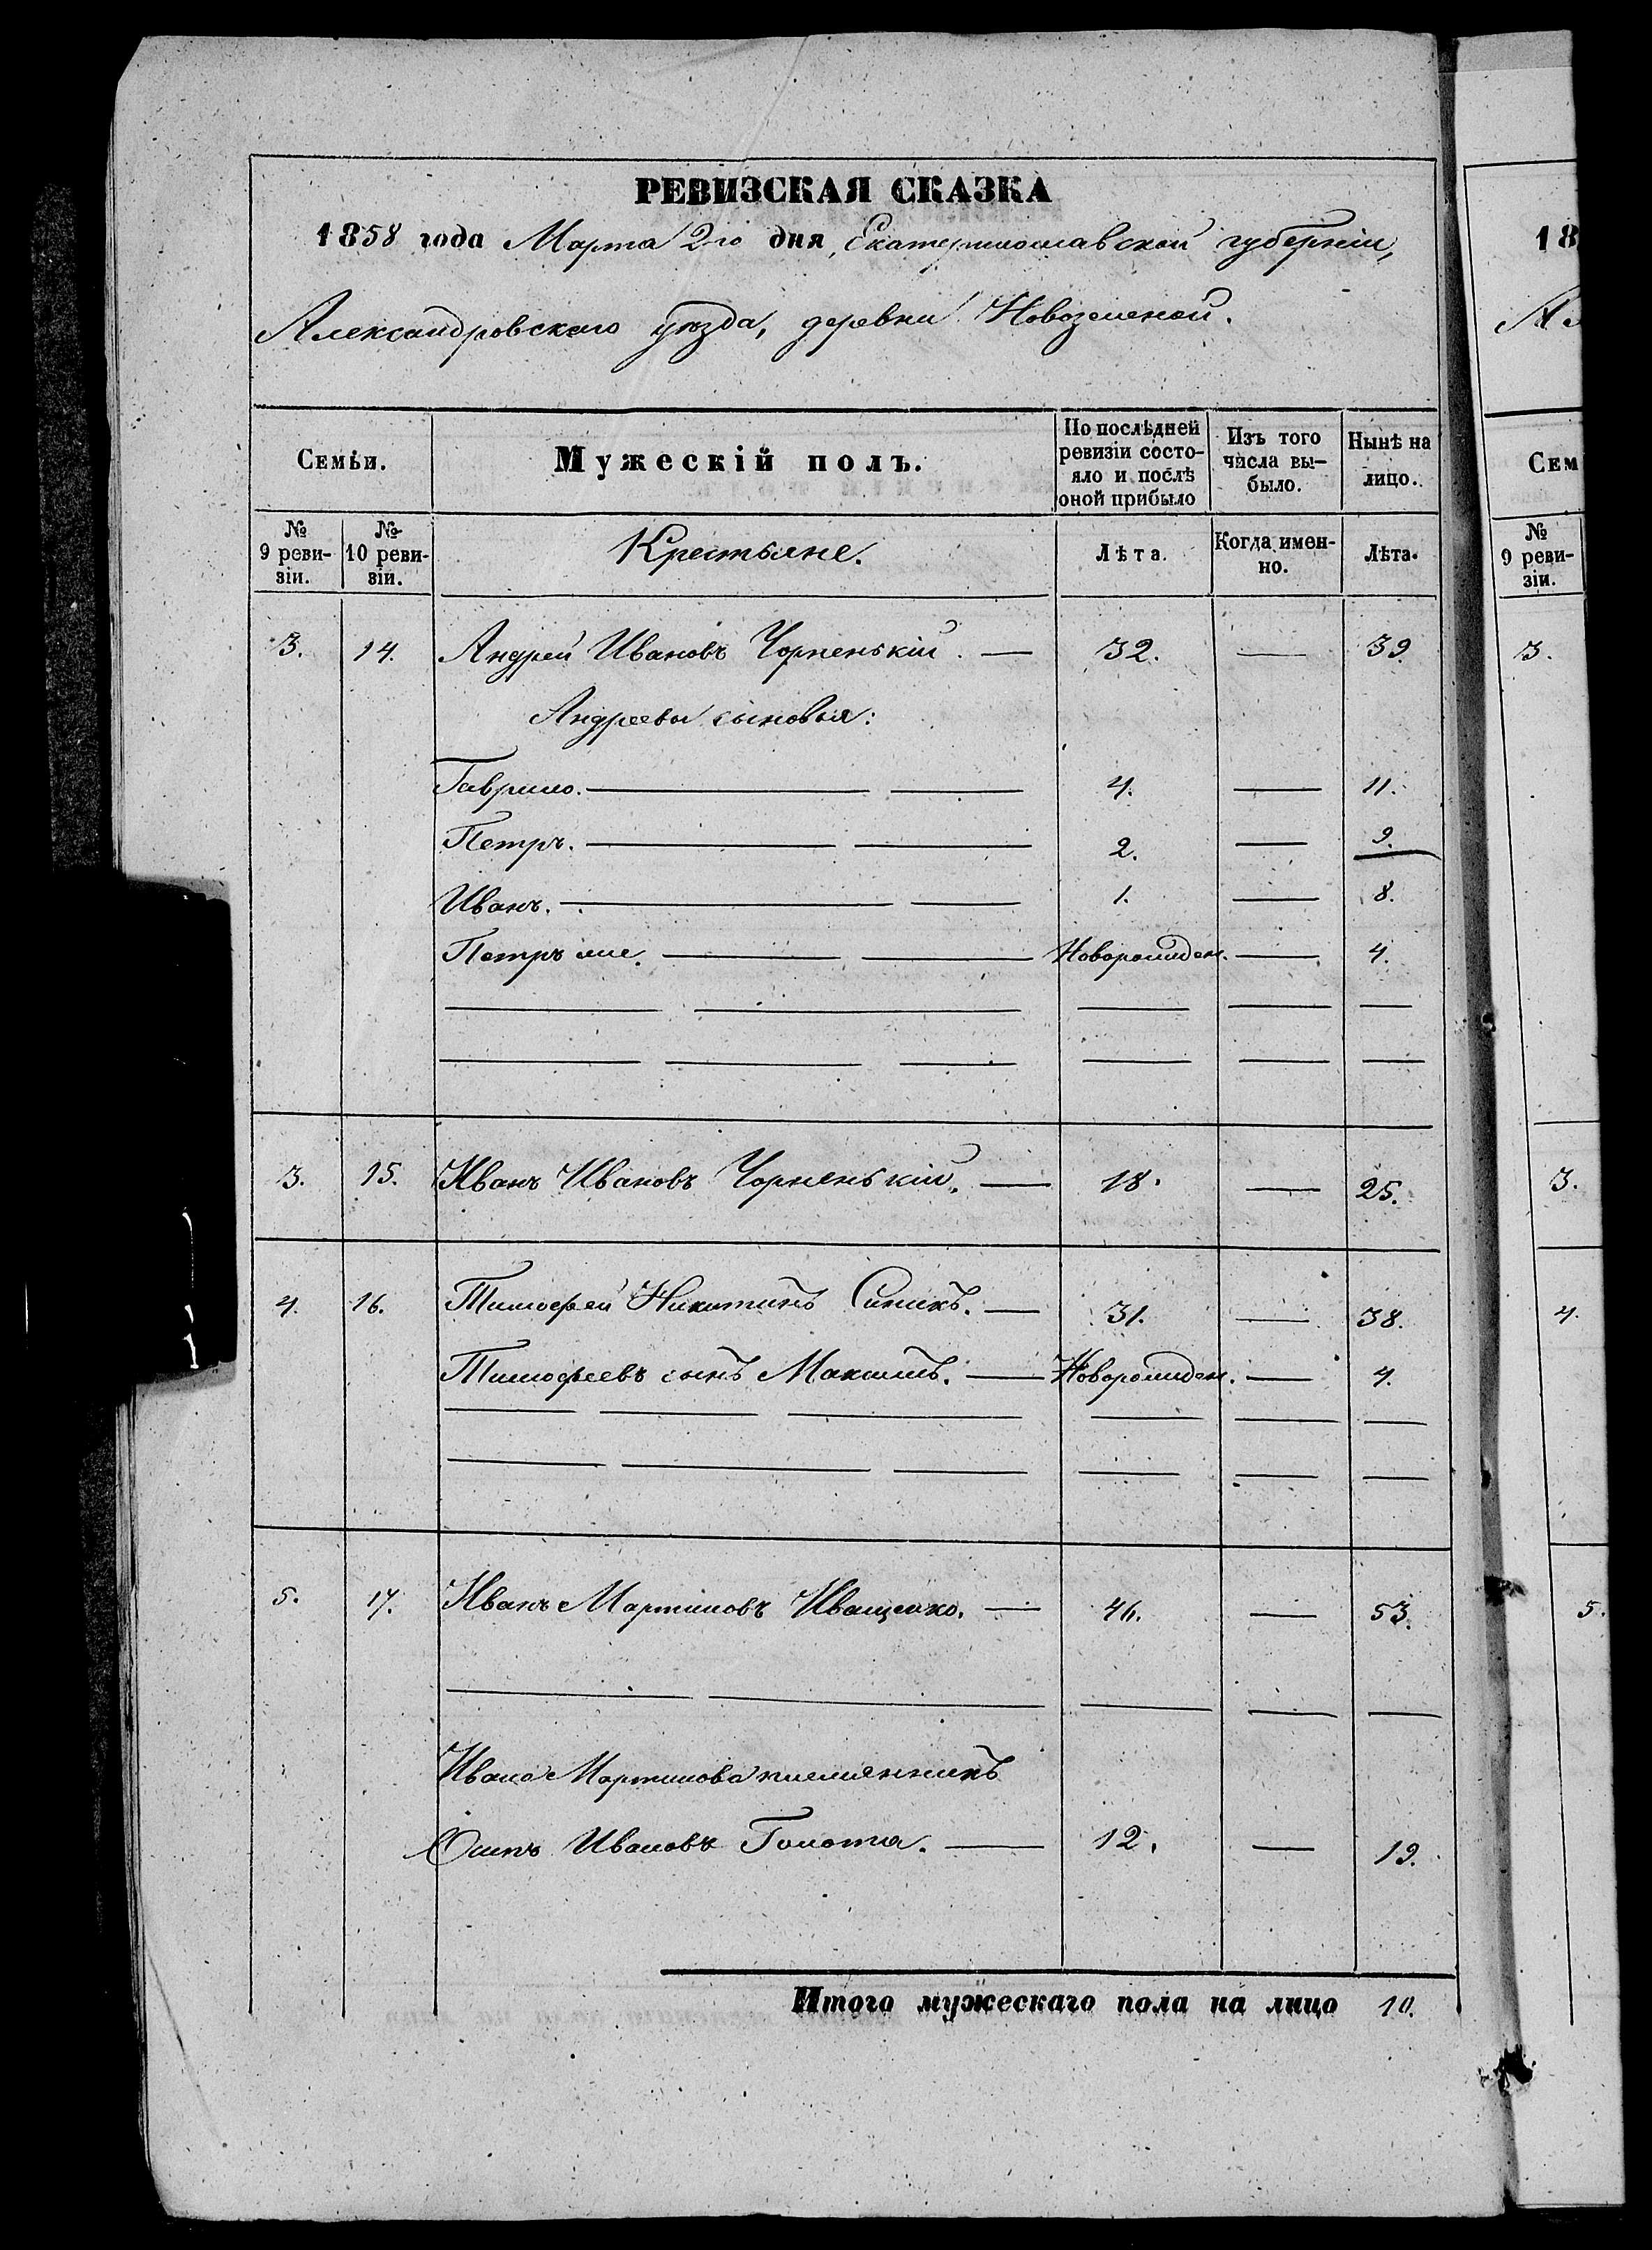 РЕВИЗСКАЯ СКАЗКА
1858 года Марта 2го дня, Екатеринославской губерніи,
Александровскаго уѣзда, деревни Новозеленой.
Семьи. Мужескій полъ. По послѣдней ревизіи состояло и послѣ оной прибыло Изъ того числа вы-было. Нынѣ на лицо.
№ 9 реви-зіи. № 10 реви-зіи. Крестьяне. Лѣта. Когда имен-но. Лѣта.
3. 14. Андрей Ивановъ Чорненькій. — 32. — 39.
Андреевы сыновья:
Гаврило. — 4. — 11.
Петръ. — 2. — 9.
Иванъ. — 1. — 8.
Петръ же. — Новорожден. — 4.
3. 15. Иванъ Ивановъ Чорненькій. — 18. — 25.
4. 16. Тимофей Никитинъ Синикъ. — 31. — 38.
Тимофеевъ сынъ Максимъ. — Новорожден. — 4.
5. 17. Иванъ Мартиновъ Иващенко. — 46. — 53.
Ивана Мартинова племянникъ
Осипъ Ивановъ Голота. — 12. — 19.
Итого мужескаго пола на лицо 10.
18
Сем
№
9 реви-
зіи.
3.
3.
4.
5.